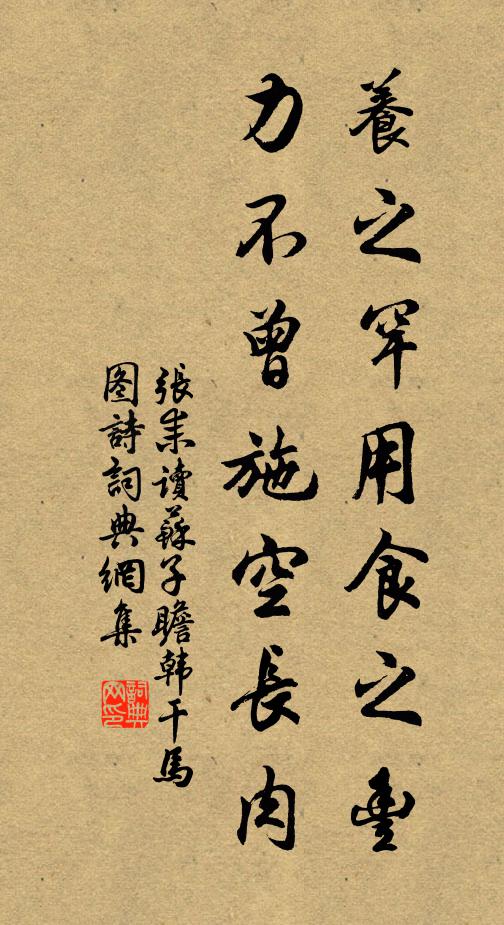 養之罕用食之豐
力不曾施空長肉
張耒讀蘇子瞻韩干馬
图詩詞典網集
詞典
网印